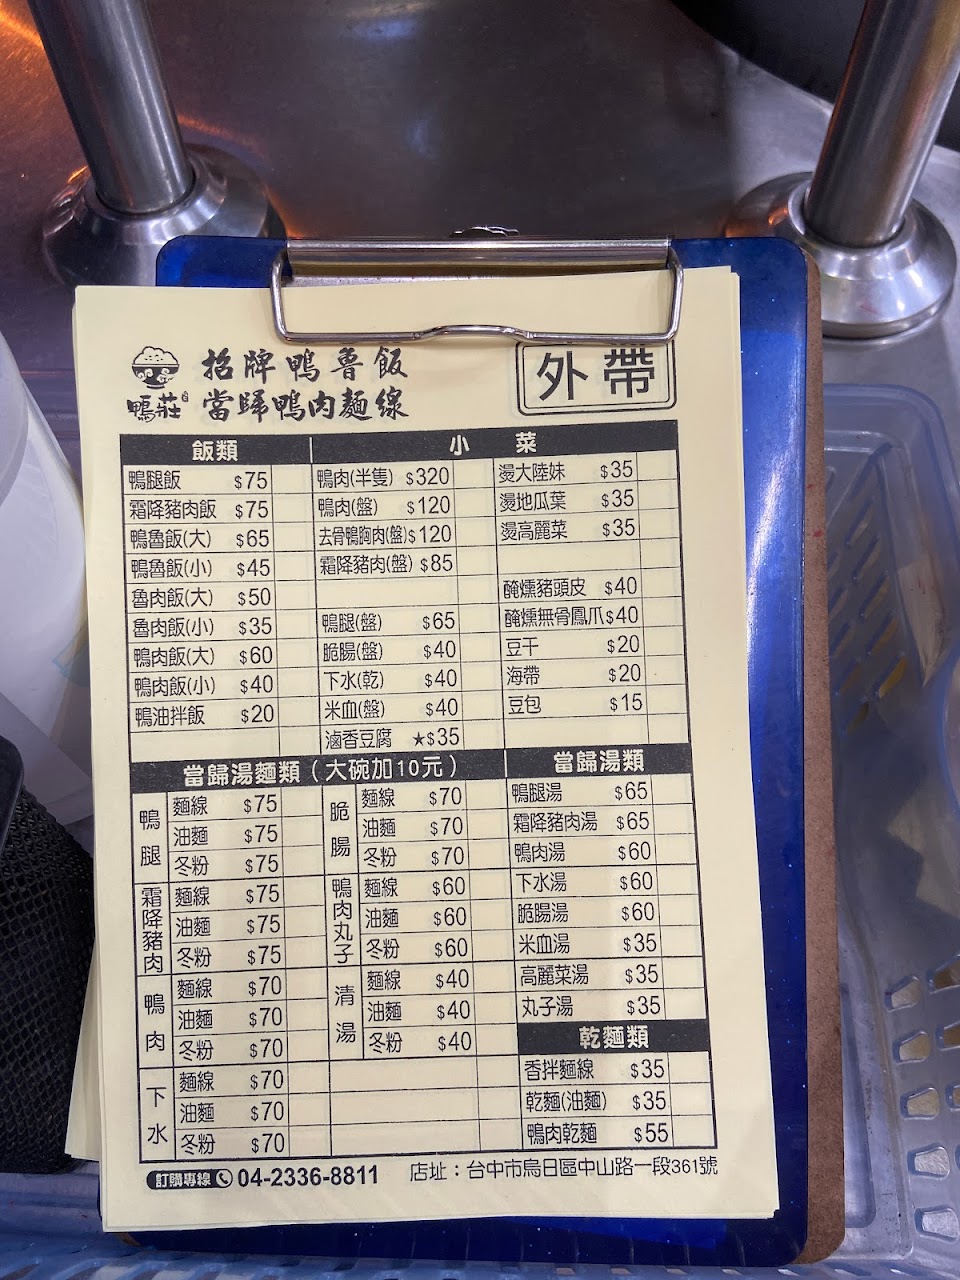 招牌鴨魯飯
鴨莊 當歸鴨肉麵線
外帶
飯類
鴨腿飯 $75
霜降豬肉飯 $75
鴨魯飯(大) $65
鴨魯飯(小) $45
魯肉飯(大) $50
魯肉飯(小) $35
鴨肉飯(大) $60
鴨肉飯(小) $40
鴨油拌飯 $20
小菜
鴨肉(半隻) $320
鴨肉(盤) $120
去骨鴨胸肉(盤) $120
霜降豬肉(盤) $85
鴨腿(盤) $65
脆腸(盤) $40
下水(乾) $40
米血(盤) $40
滷香豆腐 ★$35
燙大陸妹 $35
燙地瓜葉 $35
燙高麗菜 $35
醃燻豬頭皮 $40
醃燻無骨鳳爪 $40
豆干 $20
海帶 $20
豆包 $15
當歸湯麵類(大碗加10元)
鴨腿
麵線 $75
油麵 $75
冬粉 $75
霜降豬肉
麵線 $75
油麵 $75
冬粉 $75
鴨肉
麵線 $70
油麵 $70
冬粉 $70
下水
麵線 $70
油麵 $70
冬粉 $70
脆腸
麵線 $70
油麵 $70
冬粉 $70
鴨肉丸子
麵線 $60
油麵 $60
冬粉 $60
清湯
麵線 $40
油麵 $40
冬粉 $40
當歸湯類
鴨腿湯 $65
霜降豬肉湯 $65
鴨肉湯 $60
下水湯 $60
脆腸湯 $60
米血湯 $35
高麗菜湯 $35
丸子湯 $35
乾麵類
香拌麵線 $35
乾麵(油麵) $35
鴨肉乾麵 $55
訂購專線 04-2336-8811 店址：台中市烏日區中山路一段361號